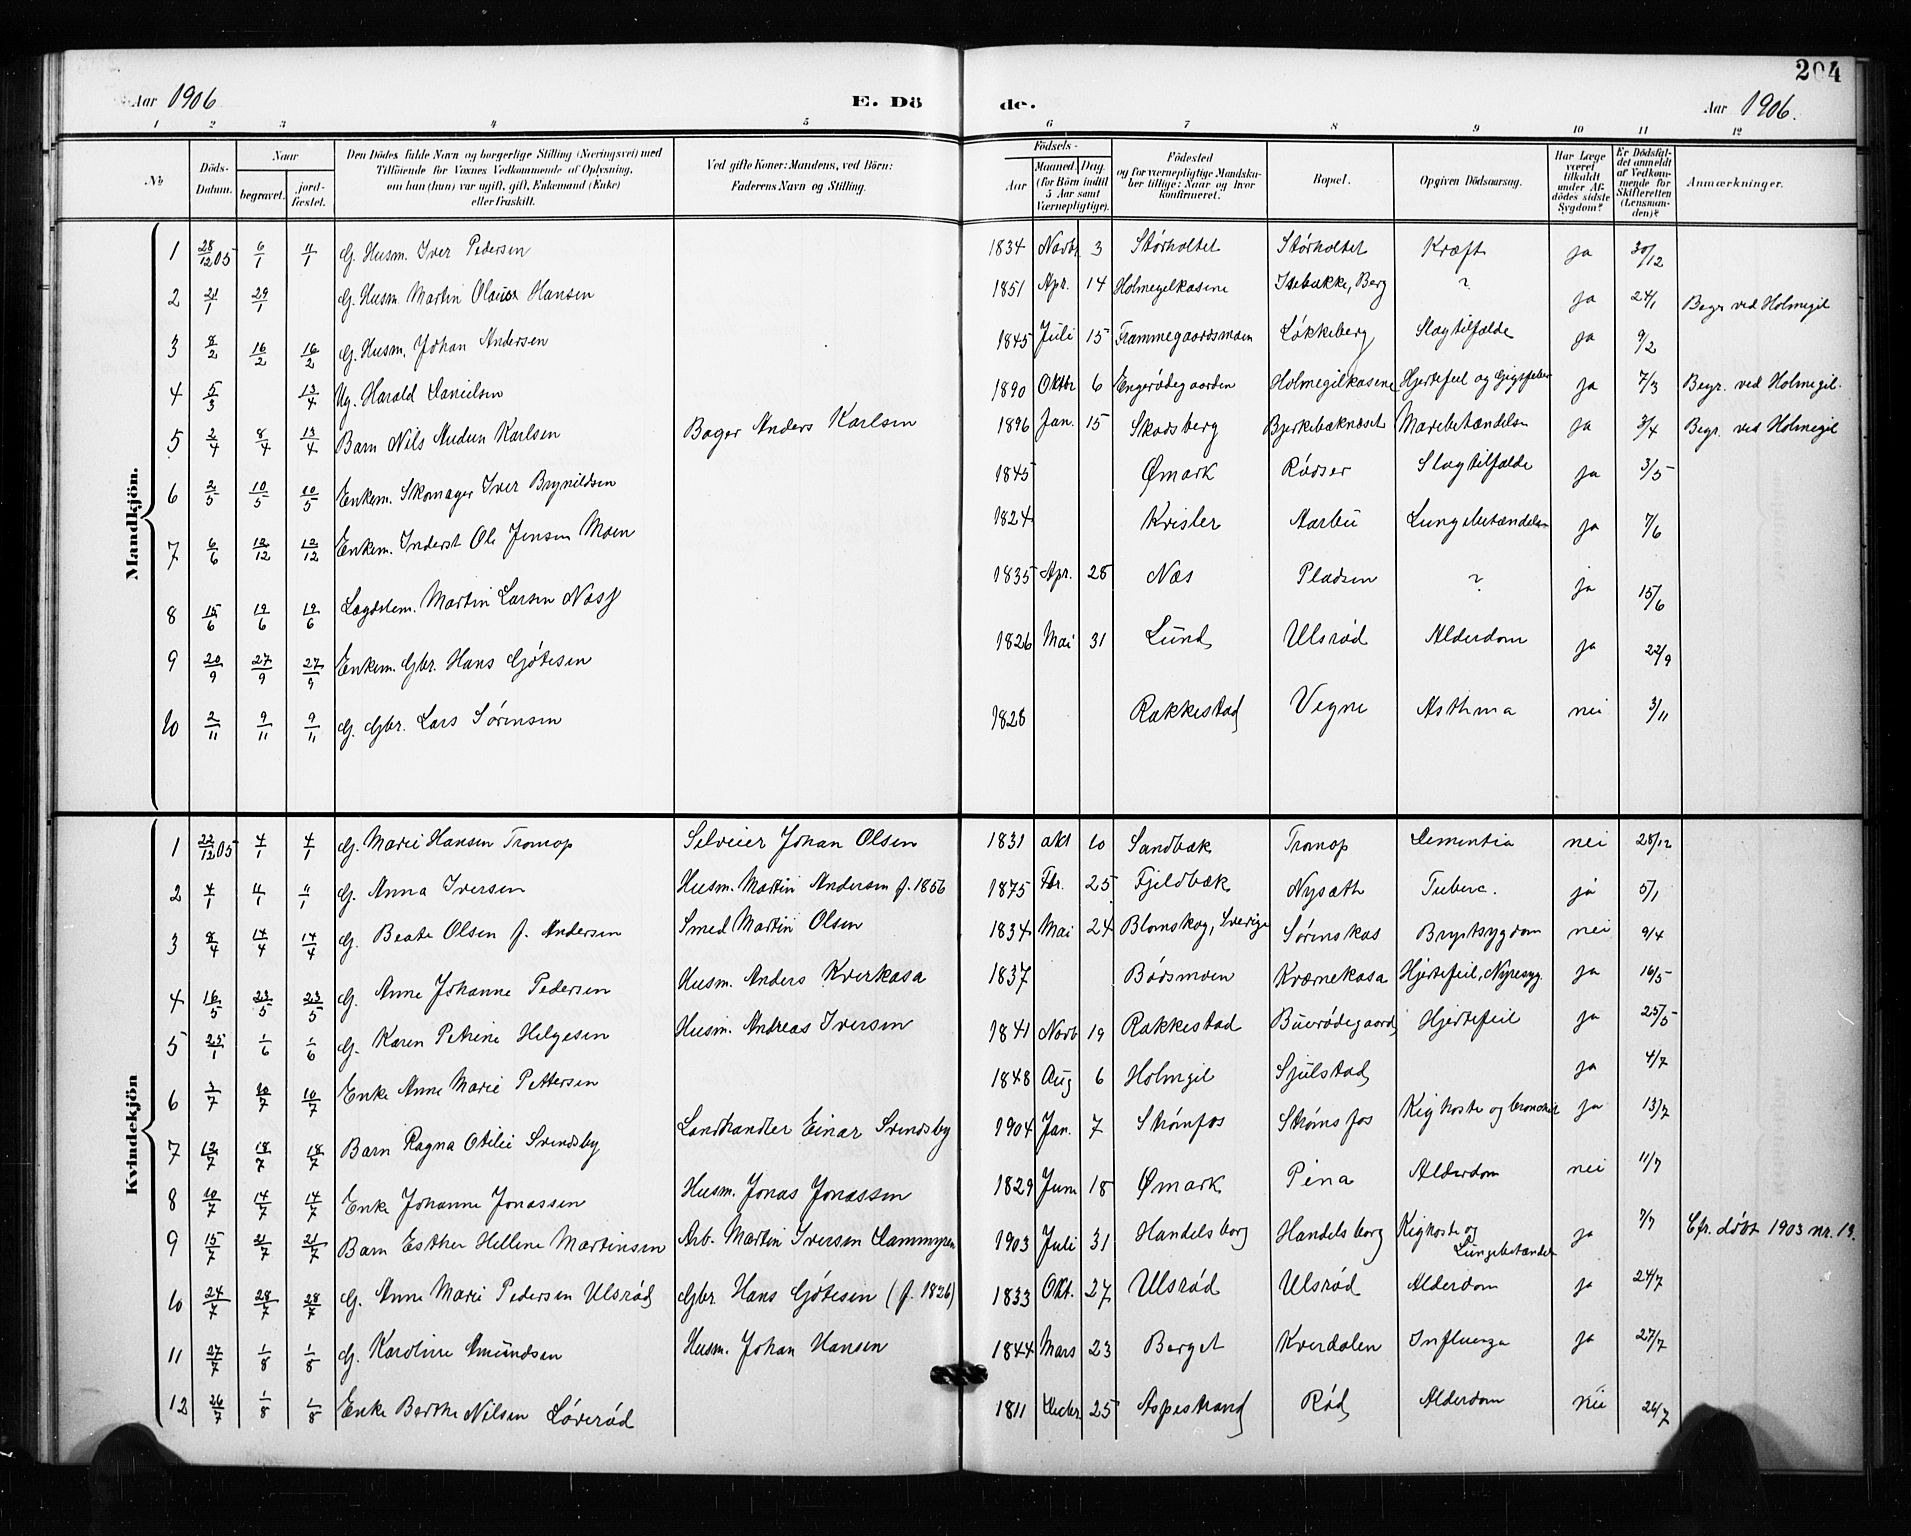 204
Aar 1906 E. Dö de. Aar 1906.
1 2 3 4 5 6 7 8 9 10 11 12
No Döds-Datum. Naar begravet. jord-fæstet. Den Dödes fulde Navn og borgerlige Stilling (Næringsvei) med Tilföiende for Voxnes Vedkommende af Oplysning, om han (hun) var ugift, gift, Enkemand (Enke) eller fraskilt. Ved gifte Koner: Mandens, ved Börn: Faderens Navn og Stilling. Födsels- Aar Maaned Dag. (for Börn indtil 5 Aar samt Værnepligtige). Födested og for værnepligtige Mandskaber tillige: Naar og hvor konfirmeret. Bopæl. Opgiven Dödsaarsag. Har Læge været tilkaldt under Afdödes sidste Sygdom? Er Dödsfaldet anmeldt af Vedkommende for Skifteretten (Lensmanden)? Anmærkninger.
Mandkjön.
1 28/12 05 6/1 11/1 G. Husm. Iver Pedersen 1834 Novbr 3 Störholtet Störholtet Kræft ja 30/12
2 21/1 29/1 G. Husm. Martin Olaus Hansen 1851 Apr. 14 Holmegilkasene Isebakke, Berg ? ja 24/1 Begr ved Holmegil
3 8/2 16/2 16/2 G. Husm. Johan Andersen 1845 Juli 15 Trammegaardsmoen Løkkeberg Slagtilfælde ja 9/2
4 5/3 13/4 Ug. Harald Danielsen 1890 Oktbr 6 Engerødegaarden Holmegilkasene Hjertefeil og Gigtfeber ja 7/3 Begr. ved Holmegil.
5 2/4 8/4 13/4 Barn Nils Audun Karlsen Bager Anders Karlsen 1896 Jan. 15 Skodsberg Bjerkebæknæset Mavebetændelse ja 3/4 Begr. ved Holmegil
6 2/5 10/5 10/5 Enkem. Skomager Iver Brynildsen 1845 Ømark Rødser Slagtilfælde ja 3/5
7 6/6 12/12 12/12 Enkem. Inderst Ole Jensen Moen 1824 Krisler Aarbu Lungebetændelse ja 7/6
8 15/6 19/6 19/6 Lægdslem. Martin Larsen Næss 1835 Apr. 28 Næs Pladsen ? ja 15/6
9 20/9 27/9 27/9 Enkem. Gbr. Hans Gjötesen 1826 Mai 31 Lund Ulsrød Alderdom ja 22/9
10 2/11 9/11 9/11 G. Gbr. Lars Sørensen 1828 Rakkestad Vegne Asthma nei 3/11
Kvindekjön
1 22/12 05 4/1 4/1 G. Marie Hansen Tromop Selveier Johan Olsen 1831 okt 10 Sandbæk Tromop Dementia nei 28/12
2 4/1 11/1 11/1 G. Anna Iversen Husm. Martin Andersen f. 1856 1875 Fbr. 25 Fjeldbæk Nysæth Tuberc. ja 5/1
3 8/4 14/4 14/4 G. Beate Olsen f. Andersen Smed Martin Olsen 1834 Mai 24 Blomskog, Sverige Sørenskas Brystsygdom nei 9/4
4 16/5 23/5 23/5 G. Anne Johanne Pedersen Husm. Anders Kverkasa 1837 Bødsmoen Kværnekasa Hjertefeil, Nyresyg. ja 16/5
5 25/1 1/6 1/6 G. Karen Petrine Helgesen Husm. Andreas Iversen 1841 Novb 19 Rakkestad Buerødegaard Hjertefeil ja 25/5
6 3/7 10/7 10/7 Enke Anne Marie Pettersen 1848 Aug 6 Holmgil Sjulstad ja 4/7
7 12/7 18/7 18/7 Barn Ragna Otilie Svendsby Landhandler Einar Svendsby 1904 Jan. 7 Strømsfos Strømsfos Kighoste og bronchit ja 13/7
8 10/7 14/7 14/7 Enke Johanne Jonassen Husm. Jonas Jonassen 1829 Juni 18 Ømark Pena Alderdom nei 11/7
9 15/7 21/7 21/7 Barn Esther Hellene Martinsen Arb. Martin Iversen Dammyren 1903 Juli 31 Handelsborg Handelsborg Kighoste og Lungebetændelse ja 7/7 Cfr. døbt 1903 nr. 13.
10 24/7 28/7 28/7 G. Anne Marie Pedersen Ulsrød Gbr. Hans Gjötesen (f. 1826) 1833 Okt. 27 Ulsrød Ulsrød Alderdom ja 24/7
11 27/7 1/8 1/8 G. Karoline Amundsen Husm. Johan Hansen 1844 Mars 23 Berget Kverdalen Influenza ja 27/7
12 26/7 1/8 1/8 Enke Berthe Nilsen Løverød 1811 Decbr. 25 Aspestrand Rød Alderdom nei 26/7